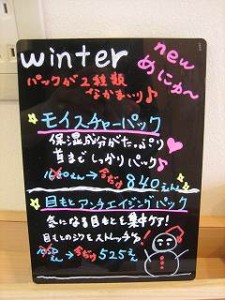 winter
new
めにゅ〜
パックが2種類
なかまいり♪
☆モイスチャーパック
保湿成分がたっぷり
首までしっかりパック♪
→今だけ840えん
☆目もとアンチエイジングパック
冬になる目もとを集中ケア!
目もとのシワとストレッチ♪
→今だけ525えん